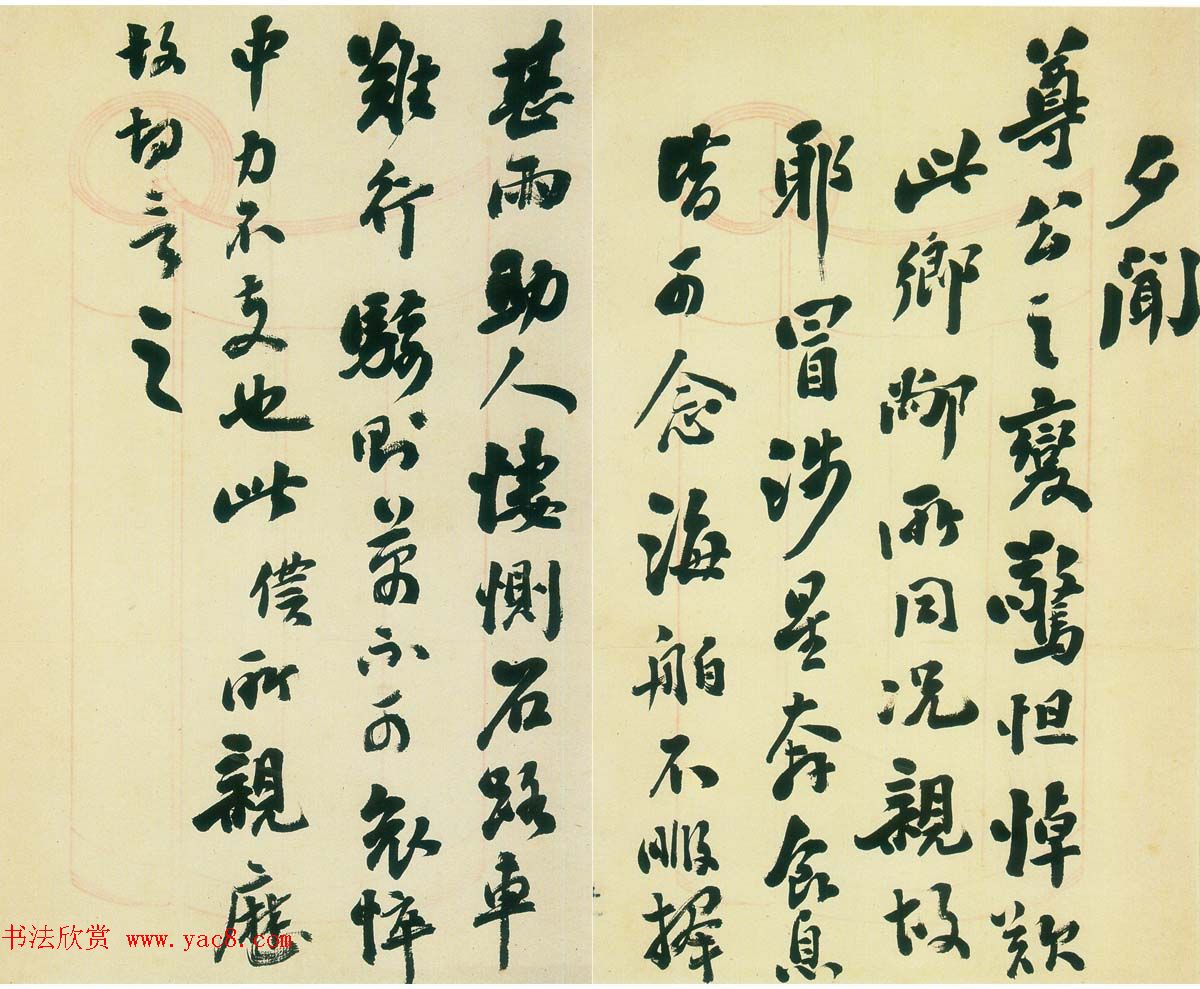 夕聞
尊公之變驚怛悼歎
此鄉鄰所同況親故
耶冒涉星奔食息
皆可念海舶不暇擇
甚雨助人悽惻石路車
難行騎則萬不可哀悴
中力不支也此僕所親歷
故切言之
书法欣赏 www.yac8.com